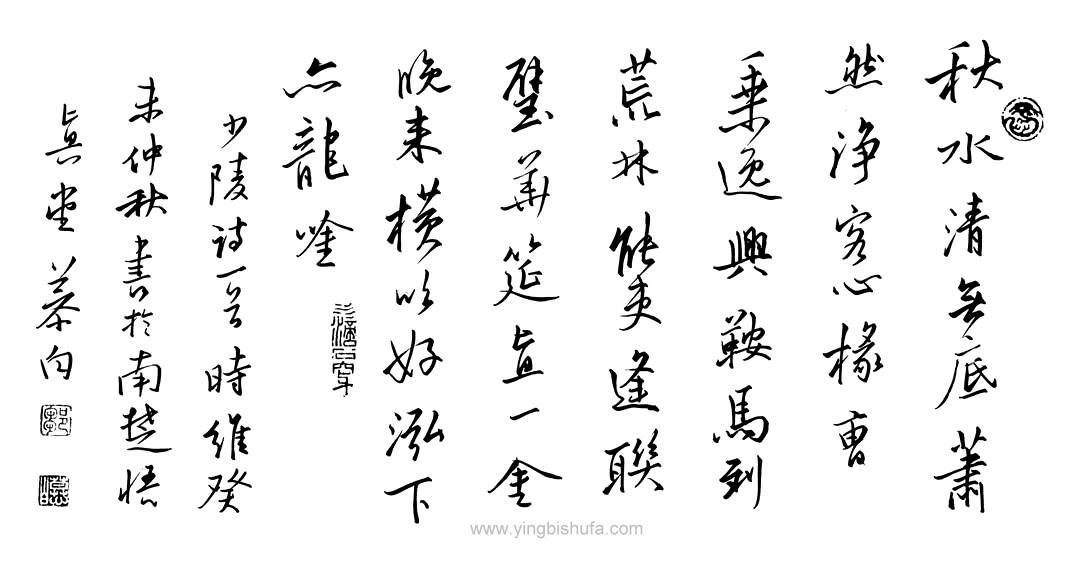 秋水清無底蕭
然浄客心掾曹
乗逸興鞍馬到
荒林能吏逢聯
璧華筵直一金
晚来横吹好泓下
亦龍唫
少陵诗一首時維癸
未仲秋書於南楚悟
真堂慕
www.yingbishufa.com